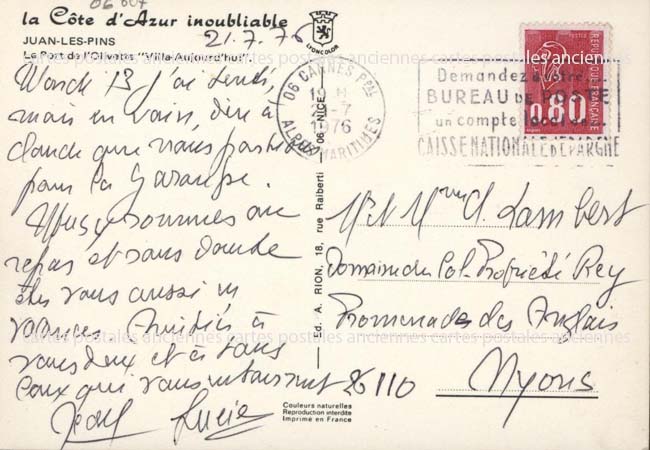 06 607
la Côte d'Azur inoubliable
JUAN-LES-PINS
21.7.76
Le Port de l'Olivette "Villa Aujourd'hui".
LYONCOLOR
Mardi 13 j'ai tenté,
mais en vain, dire à
Claude que nous partions
pour la
Nous y sommes au
repos et sans doute
êtes vous aussi en
vacances. Amitiés à
vous deux et à tous
ceux qui vous entourent
Lucie
06 CANNES PPAL
-7
1976
ALPES MARITIMES
Demandez à votre
BUREAU DE POSTE
un compte
CAISSE NATIONALE D'EPARGNE
POSTES
0,80
REPUBLIQUE FRANÇAISE
Ed. A. RION, 18, rue Raiberti 06 - NICE
M et Mme A. Lambert
Domaine du Col. Propriété Rey
Promenade des Anglais
26110 Nyons
Couleurs naturelles
Reproduction interdite
Imprimé en France
cartes postales anciennes cartes postales anciennes cartes postales anciennes